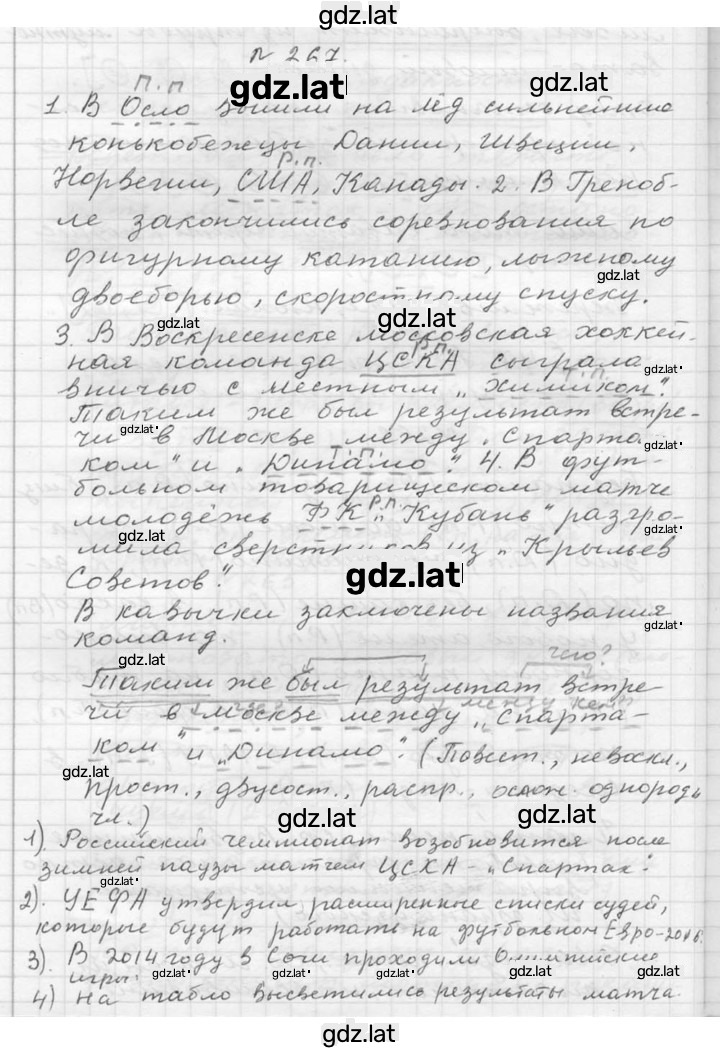 gdz.lat
N 267.
П.п
gdz.lat
gdz.lat
1. В Осло вышли на лёд сильнейшие
конькобежцы Дании, Швеции,
Р.п.
Норвегии, США, Канады. 2. В Греноб-
ле закончились соревнования по
фигурному катанию, лыжному
gdz.lat
двоеборью, скоростному спуску.
gdz.lat
gdz.lat
3. В Воскресенске московская хоккей-
ная команда ЦСКА сыграла
gdz.lat
вничью с местным „Химиком".
Таким же был результат встре-
gdz.lat
чи в Москве между „Спарта-
gdz.lat
Т.п.
ком" и „Динамо". 4. В фут-
больном товарищеском матче
Р.п.
молодёжь ФК „Кубань" разгро-
gdz.lat
мила сверстников из „Крыльев
Советов".
gdz.lat
В кавычки заключены названия
gdz.lat
команд.
gdz.lat
чего?
Таким же был результат встре-
между кем?
чи в Москве между „Спарта-
ком" и „Динамо". (Повест., невоскл.,
gdz.lat
прост., двусост., распр., ослож. однородн
чл.)
gdz.lat
gdz.lat
1). Российский чемпионат возобновится после
зимней паузы матчем ЦСКА - „Спартак".
gdz.lat
2). УЕФА утвердил расширенные списки судей,
которые будут работать на футбольном Евро-2016.
3). В 2014 году в Сочи проходили Олимпийские
игры.
gdz.lat
gdz.lat
gdz.lat
gdz.lat
4) На табло высветились результаты матча.
gdz.lat